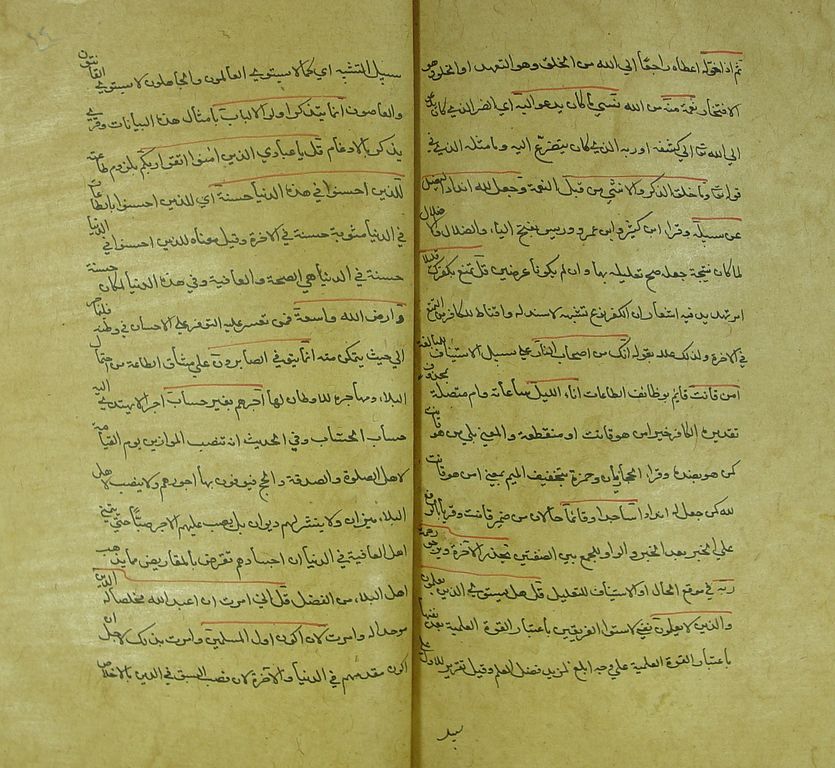 ثم اذا خوله اعطاه راجعا الي الله من الخلق وهو التعهد او الخول وهو
الافتخار نعمة منه من الله نسي ما كان يدعو اليه اي الضر الذي كان يدعو
الي الله تعا الي كشفه او ربه الذي كان يتضرع اليه وما مثله الذي في
قوله تعا وما خلق الذكر والانثي من قبل النعمة وجعل لله اندادا ليضل
عن سبيله وقرا ابن كثير وابن عمرو ورويس بفتح الياء والضلال والاضلال
لما كان نتيجة جعله صح تعليله بها وان لم يكونا غرضين قل تمتع بكفرك قليلا
امر تهديد فيه اشعار ان الكفر نوع تشبه لا سند له واقناط للكافرين التمتع
في الاخرة ولذلك علله بقوله انك من اصحاب النار علي سبيل الاستيناف للمبالغة
امن قانت قايم بوظائف الطاعات اناء الليل ساعاته وام متصلة بمحذوف
تقديره الكافر خير امن هو قانت او منقطعة والمعني بل من هو قانت
كمن هو بضده وقرا الحجازيان وحمزة بتخفيف الميم بمعني امن هو قانت
لله كمن جعل له اندادا ساجدا وقائما حالان من ضمير قانت وقريا بالرفع
علي الخبر بعد الخبر والواو للجمع بين الصفتين يحذر الآخرة ويرجو رحمة
ربه في موقع الحال او الاستيناف للتعليل قل هل يستوي الذين يعلمون
والذين لا يعلون نفي لاستوا الفريقين باعتبار القوة العلمية بعد نفيها
باعتبار القوة العلمية علي وجه ابلغ لمزيد فضل العلم وقيل تقرير للاول علي
سبيل
سبيل التشبيه اي كما لا يستوي العالمون والجاهلون لا يستوي القانتون
والعاصون انما يتذكر اولو الالباب بامثال هذا البيانات وقري
يذكر بالادغام قل يا عبادي الذين امنوا اتقوا ربكم بلزوم طاعته
للذين احسنوا في هذه الدنيا حسنة اي للذين احسنوا بالطاعات
في الدنيا مثوبة حسنة في الاخرة وقيل معناه للذين احسنوا في الدنيا
حسنة في الدنيا هي الصحة والعافية وفي هذه الدنيا لمكان حسنة
وارض الله واسعة فمن تعسر عليه التوفر علي الاحسان في وطنه فليهاجر
الي حيث يتمكن منه انما يوفي الصابرون علي مشاق الطاعة من احتمال
البلاء ومهاجرة للاوطان لها اجرهم بغير حساب اجرا لا يهتدي اليه
حساب الحساب وفي الحديث انه تنصب الموازين يوم القيامة
لاهل الصلوة والصدقة والحج فيوفون بها اجورهم ولا ينصب لاهل
البلاء ميزان ولا ينشر لهم ديوان بل يصب عليهم الاجر صبا حتي يتمني
اهل العافية في الدنيا ان اجسادهم تقرض بالمقاريض مما يذهب
اهل البلاء من الفضل قل اني امرت ان اعبد الله مخلصا له الدين
موحدا له وامرت لان اكون اول المسلمين وامرت بذلك لاجل ان
اكون مقدمهم في الدنيا والآخرة لان قصب السبق في الدين بالاخلاص